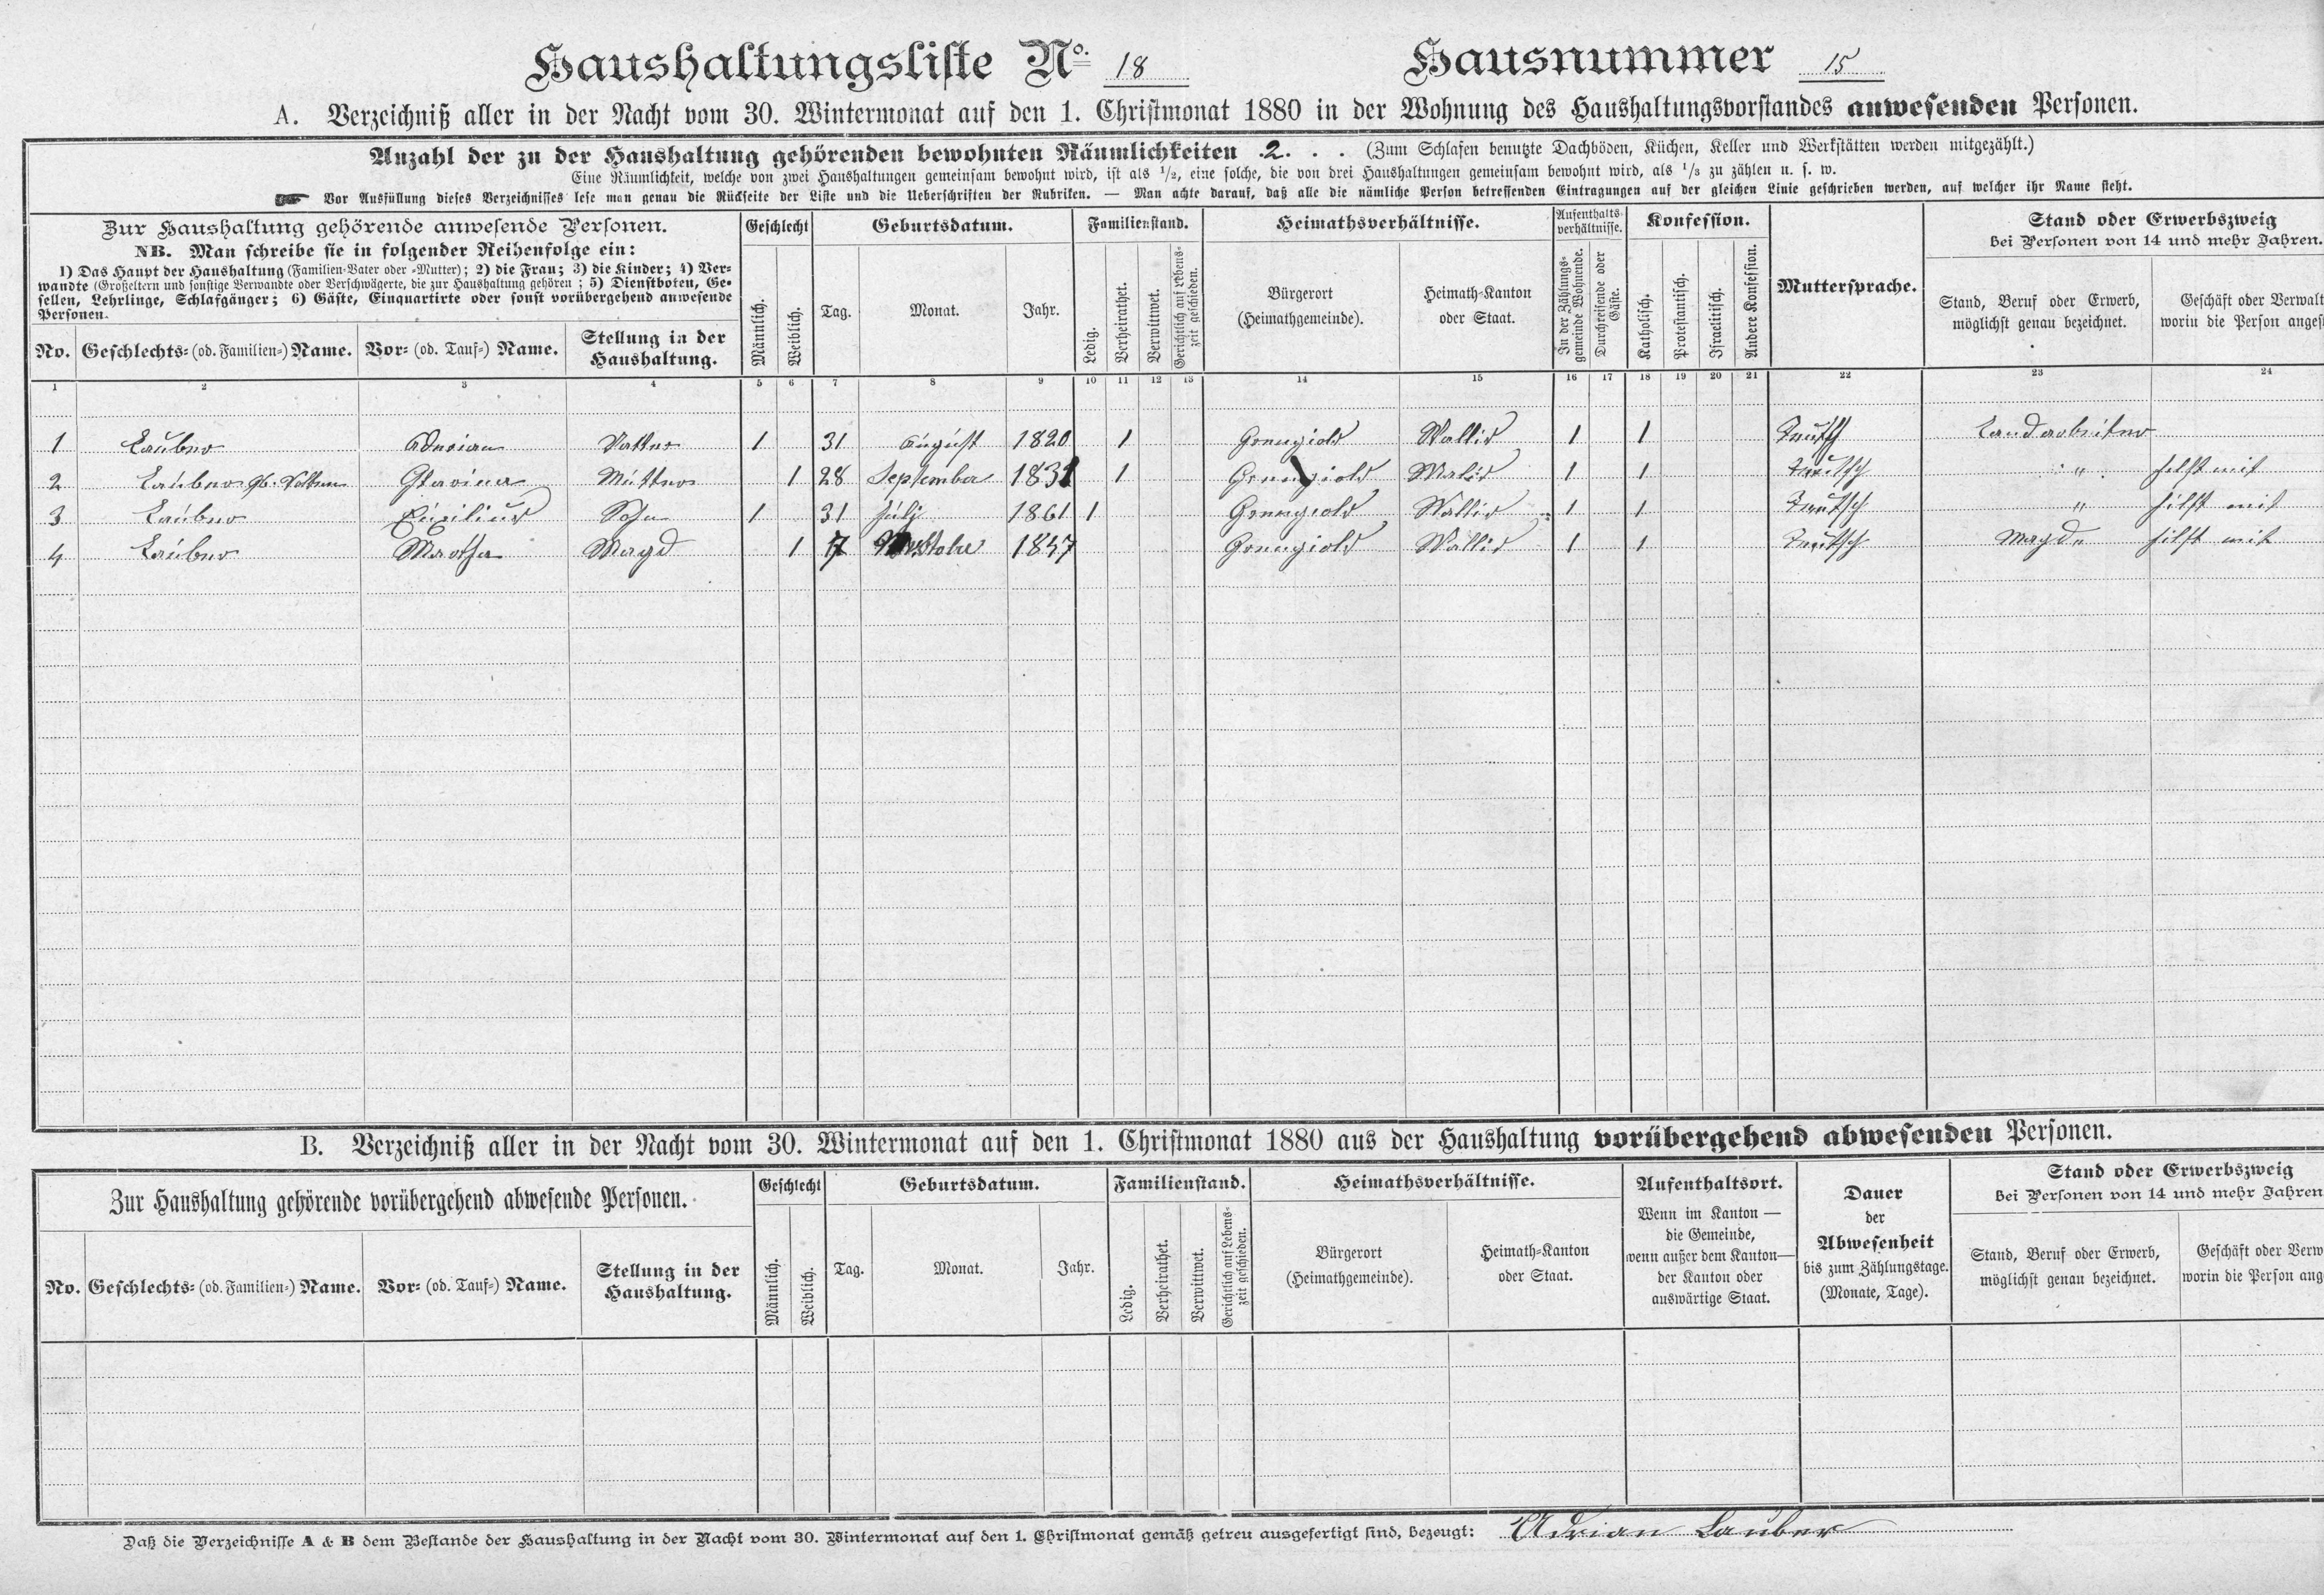 Haushaltungsliste No. 18 Hausnummer 15
A. Verzeichniß aller in der Nacht vom 30. Wintermonat auf den 1. Christmonat 1880 in der Wohnung des Haushaltungsvorstandes anwesenden Personen.
Anzahl der zu der Haushaltung gehörenden bewohnten Räumlichkeiten 2. . . (Zum Schlafen benutzte Dachböden, Küchen, Keller und Werkstätten werden mitgezählt.)
Eine Räumlichkeit, welche von zwei Haushaltungen gemeinsam bewohnt wird, ist als 1/2, eine solche, die von drei Haushaltungen gemeinsam bewohnt wird, als 1/3 zu zählen u. s. w.
☛ Vor Ausfüllung dieses Verzeichnisses lese man genau die Rückseite der Liste und die Ueberschriften der Rubriken. — Man achte darauf, daß alle die nämliche Person betreffenden Eintragungen auf der gleichen Linie geschrieben werden, auf welcher ihr Name steht.
Zur Haushaltung gehörende anwesende Personen.
NB. Man schreibe sie in folgender Reihenfolge ein:
1) Das Haupt der Haushaltung (Familien-Vater oder -Mutter); 2) die Frau; 3) die Kinder; 4) Ver-
wandte (Großeltern und sonstige Verwandte oder Verschwägerte, die zur Haushaltung gehören; 5) Dienstboten, Ge-
sellen, Lehrlinge, Schlafgänger; 6) Gäste, Einquartirte oder sonst vorübergehend anwesende
Personen.
No. Geschlechts- (od. Familien-) Name. Vor- (od. Tauf-) Name. Stellung in der
Haushaltung.
Geschlecht
Männlich. Weiblich.
Geburtsdatum.
Tag. Monat. Jahr.
Familienstand.
Ledig. Verheirathet. Verwittwet. Gerichtlich auf Lebens-
zeit geschieden.
Heimathsverhältnisse.
Bürgerort
(Heimathgemeinde).
Heimath-Kanton
oder Staat.
Aufenthalts-
verhältnisse.
In der Zählungs-
gemeinde Wohnende.
Durchreisende oder
Gäste.
Konfession.
Katholisch. Protestantisch. Israelitisch. Andere Konfession.
Muttersprache.
Stand oder Erwerbszweig
bei Personen von 14 und mehr Jahren.
Stand, Beruf oder Erwerb,
möglichst genau bezeichnet.
Geschäft oder Verwalt
worin die Person anges
1 2 3 4 5 6 7 8 9 10 11 12 13 14 15 16 17 18 19 20 21 22 23 24
1 Lauber Adrian Vatter 1 31 August 1820 1 Grengiols Wallis 1 1 Teutsch Landarbeiter
2 Lauber Mutter 1 28 September 1831 1 Grengiols Walis 1 1 Teutsch " helft mit
3 Lauber Sohn 1 31 Julj 1861 1 Grengiols Wallis 1 1 Teutsch " hilft mit
4 Lauber Martha Magd 1 17 1857 Grengiols Wallis 1 1 Teutsch Magd hilft mit
B. Verzeichniß aller in der Nacht vom 30. Wintermonat auf den 1. Christmonat 1880 aus der Haushaltung vorübergehend abwesenden Personen.
Zur Haushaltung gehörende vorübergehend abwesende Personen.
No. Geschlechts- (od. Familien-) Name. Vor- (od. Tauf-) Name. Stellung in der
Haushaltung.
Geschlecht
Männlich. Weiblich.
Geburtsdatum.
Tag. Monat. Jahr.
Familienstand.
Ledig. Verheirathet. Verwittwet. Gerichtlich auf Lebens-
zeit geschieden.
Heimathsverhältnisse.
Bürgerort
(Heimathgemeinde).
Heimath-Kanton
oder Staat.
Aufenthaltsort.
Wenn im Kanton —
die Gemeinde,
wenn außer dem Kanton—
der Kanton oder
auswärtige Staat.
Dauer
der
Abwesenheit
bis zum Zählungstage.
(Monate, Tage).
Stand oder Erwerbszweig
bei Personen von 14 und mehr Jahren
Stand, Beruf oder Erwerb,
möglichst genau bezeichnet.
Geschäft oder Verw
worin die Person ang
Daß die Verzeichnisse A & B dem Bestande der Haushaltung in der Nacht vom 30. Wintermonat auf den 1. Christmonat gemäß getreu ausgefertigt sind, bezeugt: Adrian Lauber